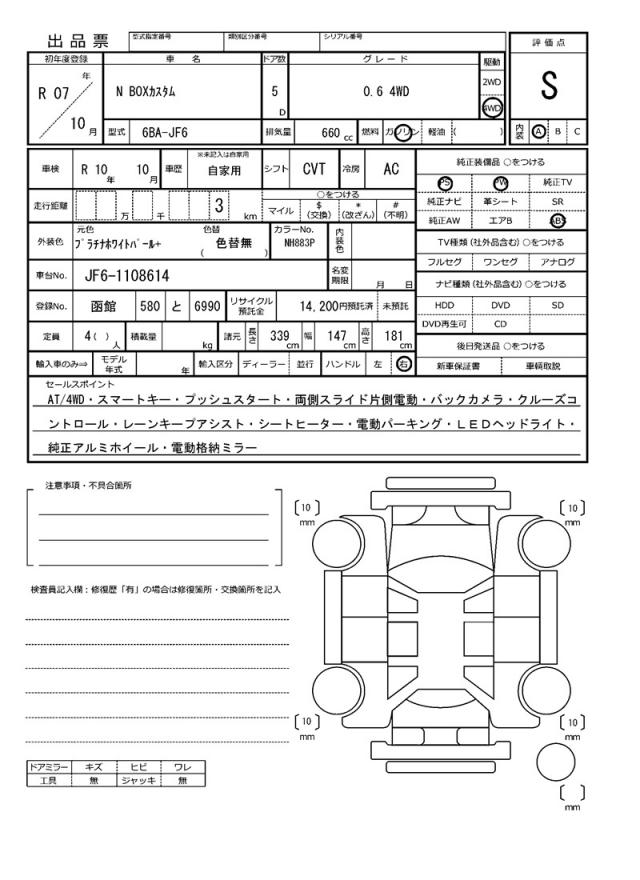 出品票
型式指定番号 類別区分番号 シリアル番号
初年度登録 車名 ドア数 グレード 駆動 評価点
R 07 年 10 月 N BOXカスタム 5 D 0.6 4WD 2WD 4WD S
型式 6BA-JF6 排気量 660 cc 燃料 ガソリン 軽油 ( ) 内装 A B C
車検 R 10 年 10 月 車歴 ※未記入は自家用 自家用 シフト CVT 冷房 AC
純正装備品 ○をつける
PS PW 純正TV
純正ナビ 革シート SR
純正AW エアB ABS
走行距離 万 千 3 km
○をつける
マイル $(交換) *(改ざん) #(不明)
外装色 元色 プラチナホワイトパール+ 色替 ( 色替無 ) カラーNo. NH883P 内装色
TV種類 (社外品含む) ○をつける
フルセグ ワンセグ アナログ
車台No. JF6-1108614 名変期限 月 日
ナビ種類 (社外品含む) ○をつける
登録No. 函館 580 と 6990 リサイクル預託金 14,200円預託済 未預託
HDD DVD SD
DVD再生可 CD
定員 4( )人 積載量 kg 諸元 長さ 339 cm 幅 147 cm 高さ 181 cm
後日発送品 ○をつける
輸入車のみ⇒ モデル年式 年 輸入区分 ディーラー 並行 ハンドル 左 右
新車保証書 車輌取説
セールスポイント
AT/4WD・スマートキー・プッシュスタート・両側スライド片側電動・バックカメラ・クルーズコ
ントロール・レーンキープアシスト・シートヒーター・電動パーキング・LEDヘッドライト・
純正アルミホイール・電動格納ミラー
注意事項・不具合箇所
〔10〕mm 〔10〕mm
検査員記入欄:修復歴「有」の場合は修復箇所・交換箇所を記入
〔10〕mm 〔10〕mm
ドアミラー キズ ヒビ ワレ
工具 無 ジャッキ 無
〔 〕mm